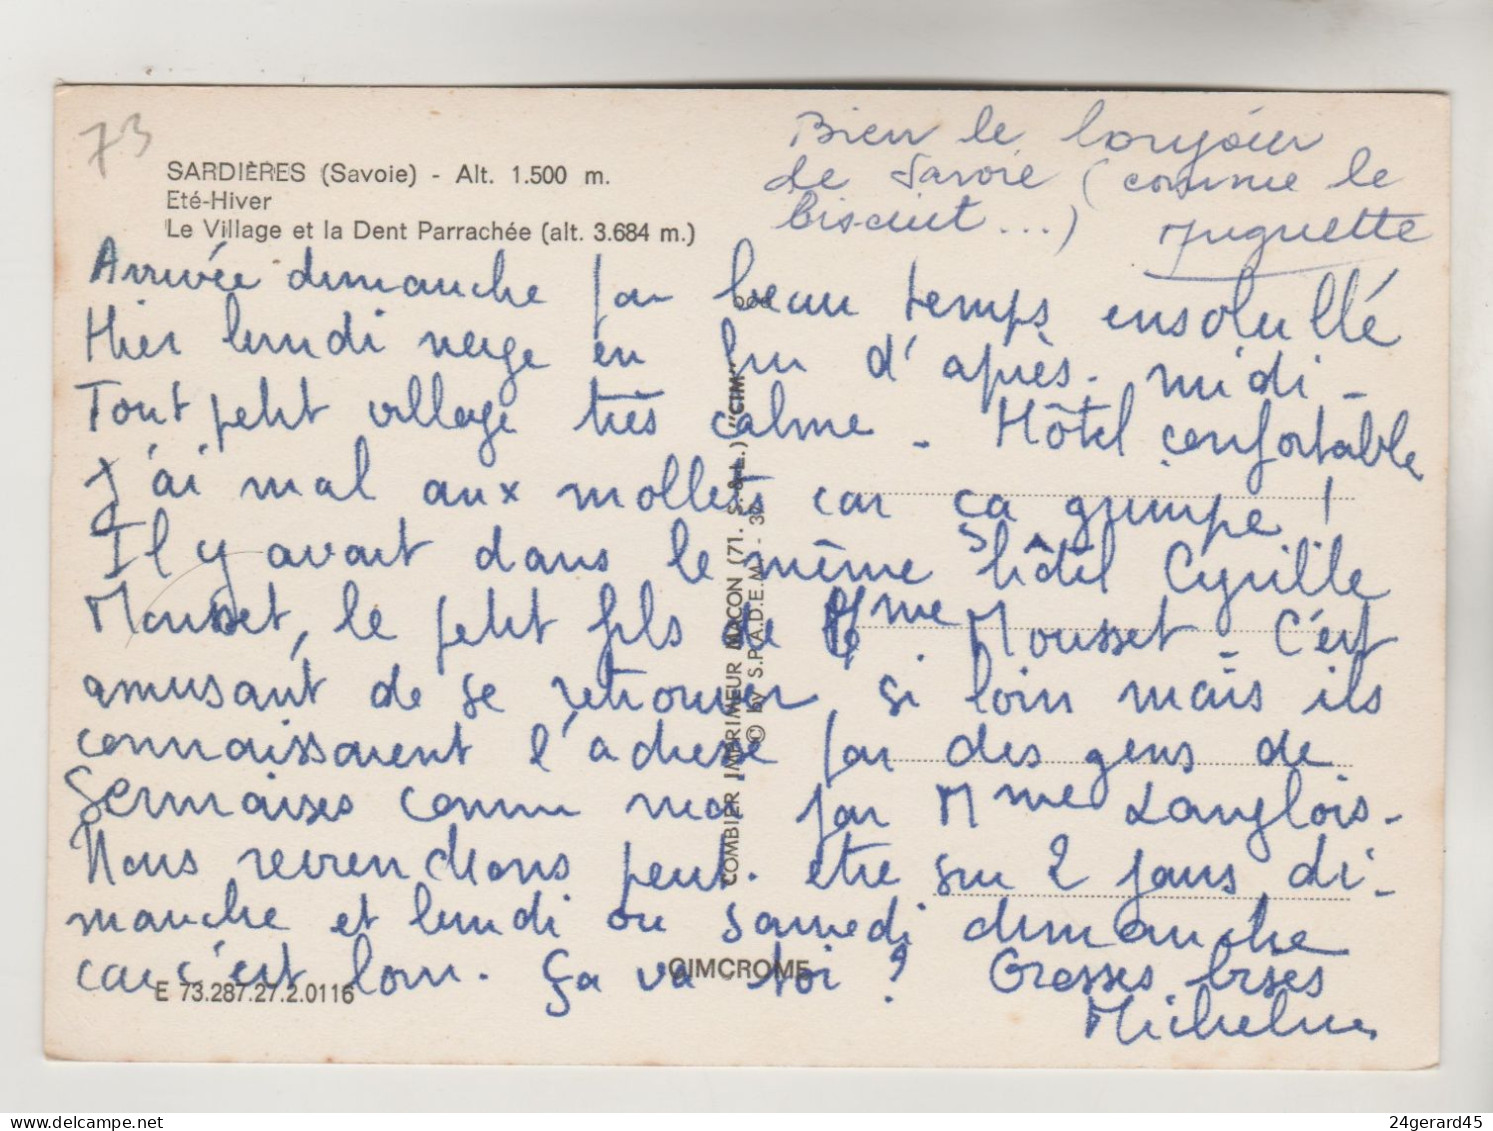 73
SARDIÈRES (Savoie) - Alt. 1.500 m.
Eté-Hiver
Le Village et la Dent Parrachée (alt. 3.684 m.)
Bien le bonjour
de Savoie (comme le
biscuit...)
Huguette
Arrivée dimanche par beau temps ensoleillé
Hier lundi neige en fin d'après-midi -
Tout petit village très calme - Hôtel confortable
J'ai mal aux mollets car ça grimpe !
Il y avait dans le même hôtel Cyrille
Mousset, le petit fils de Mme Mousset - C'est
amusant de se retrouver si loin mais ils
connaissaient l'adresse par des gens de
Sermaises comme moi par Mme Langlois -
Nous reviendrons peut-être sur 2 jours di-
manche et lundi ou samedi dimanche
car c'est loin. Ça va toi ? Grosses bises
Micheline
COMBIER IMPRIMEUR MACON (71. S.-&-L.) "CIM"
© by S.P.A.D.E.M. - 3
CIMCROME
E 73.287.27.2.0116
24gerard45